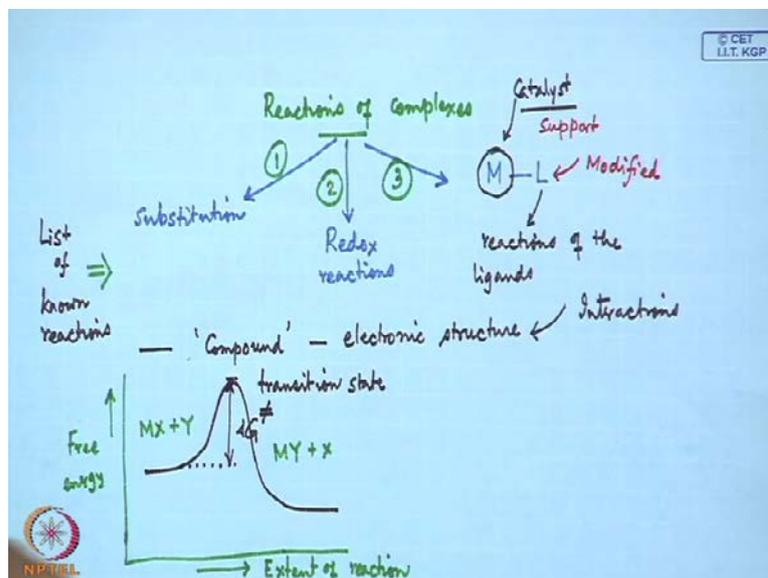 © CET
I.I.T. KGP
Reactions of complexes
Catalyst
support
1
2
3
M - L
Modified
Substitution
Redox
reactions
reactions of the
ligands
List
of
known
reactions
⇒
— 'Compound' — electronic structure
Interactions
transition state
ΔG≠
MX + Y
MY + X
Free
energy
→ Extent of reaction
NPTEL